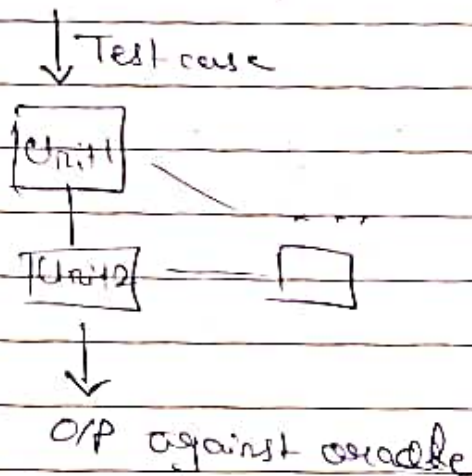 Test case
Unit1
Unit2
O/P against oracle